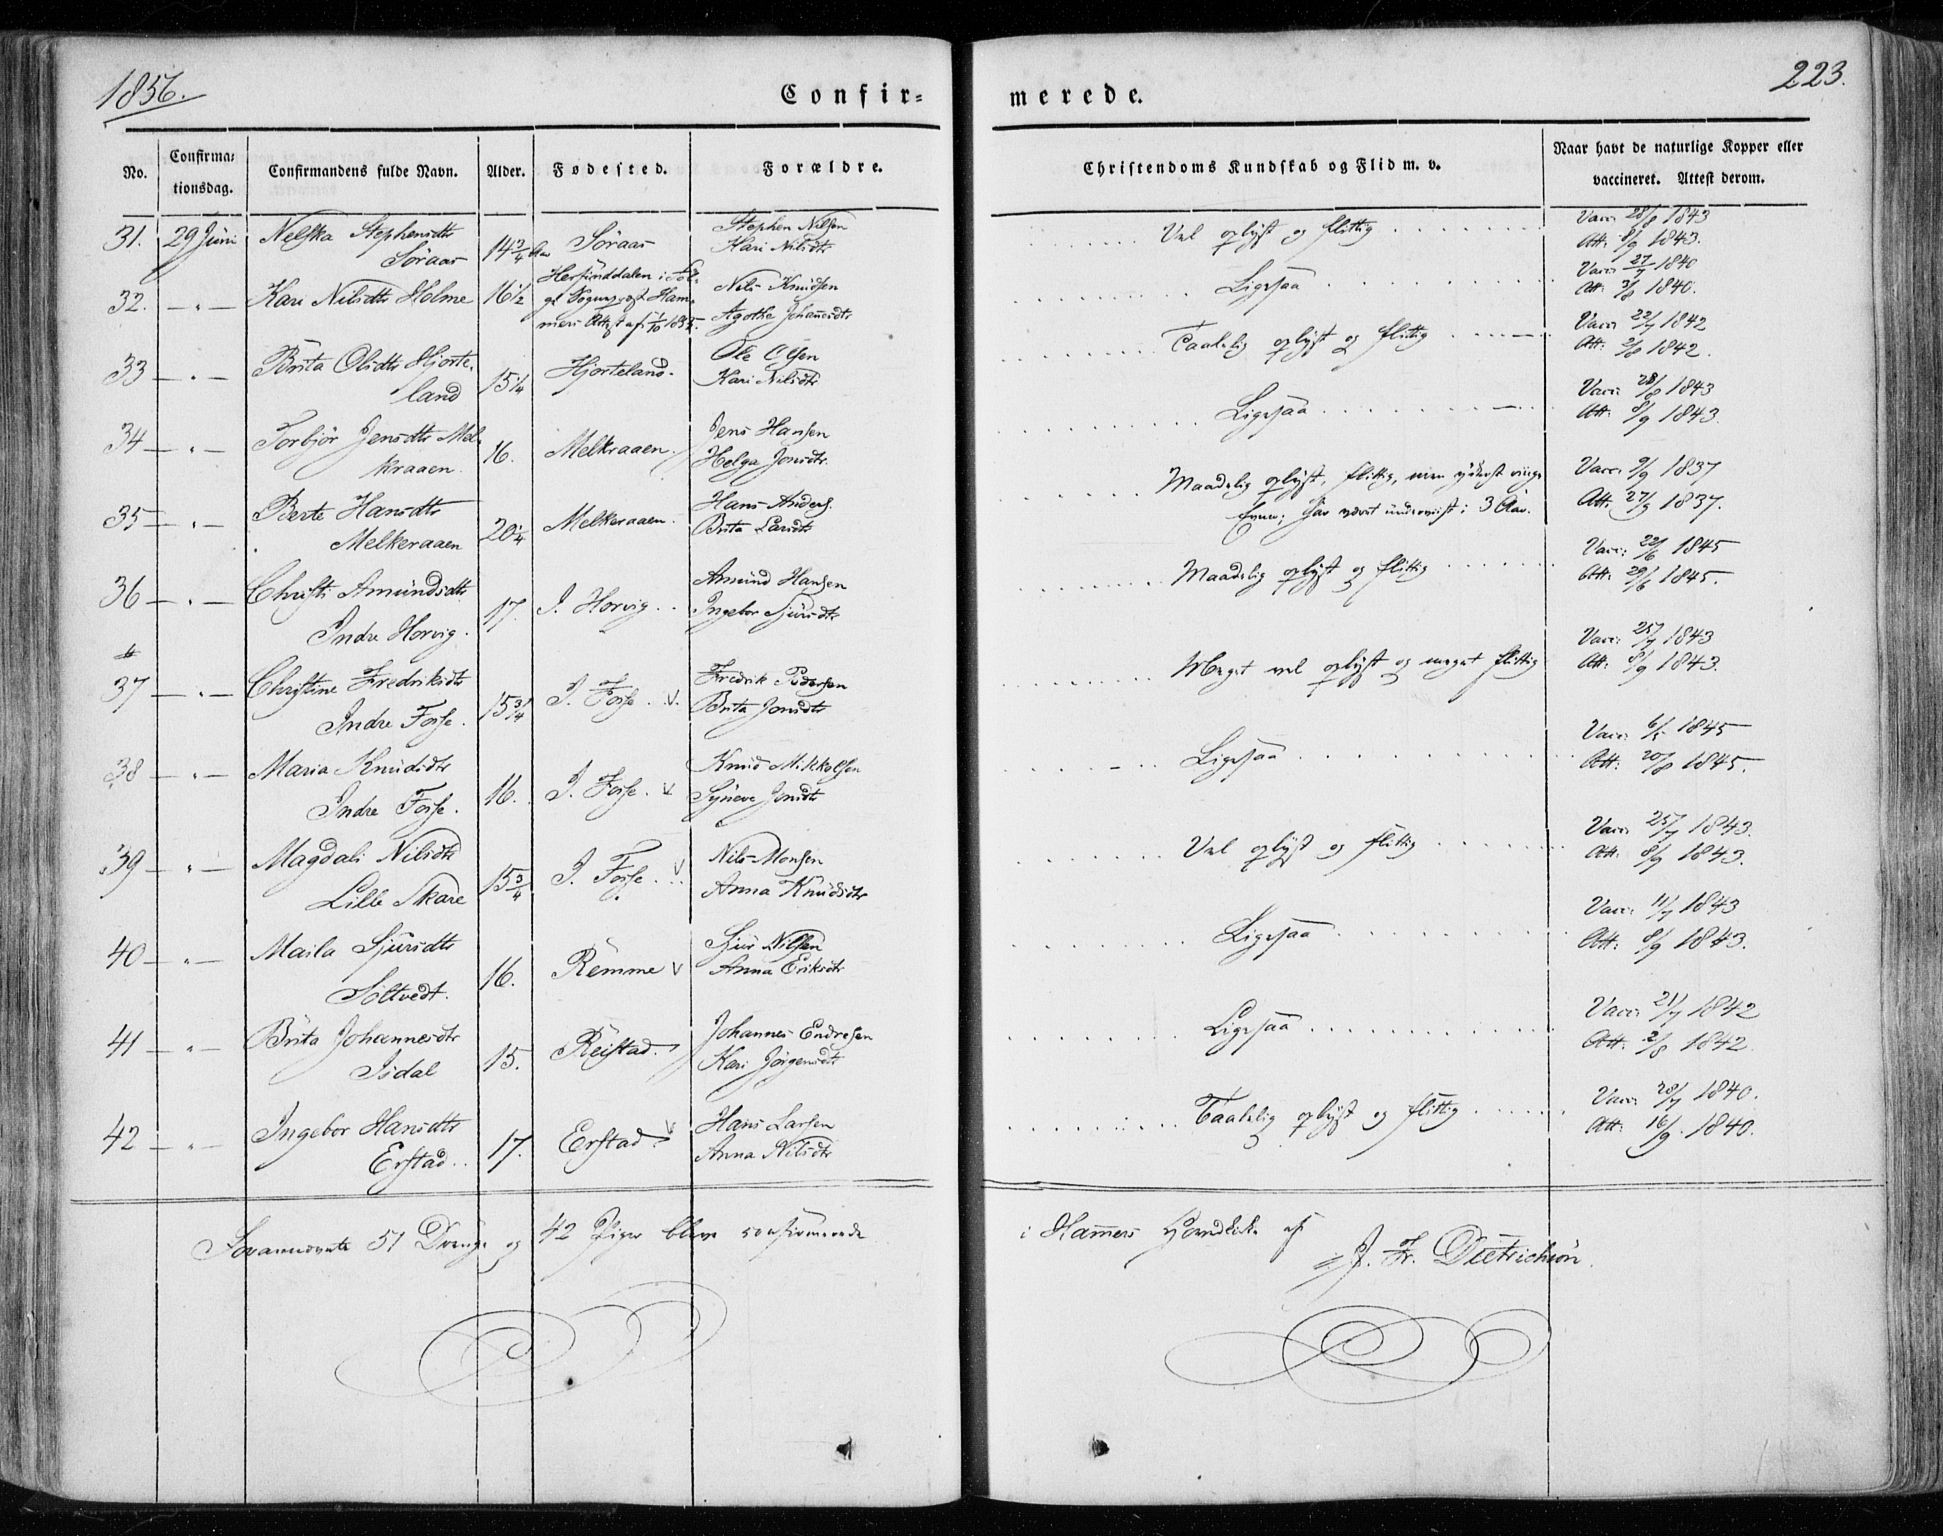 1856.
Confir-
merede.
223.
No.
Confirma-
tionsdag.
Confirmandens fulde Navn.
Alder.
Fødested.
Forældre.
Christendoms Kundskab og Flid m. v.
Naar havt de naturlige Kopper eller
vaccineret. Attest derom.
31. 29 Juni Nelska Stephensdtr 14¾ Aar Söraas Stephen Nilsen Vel oplyst og flittig Vacc: 28/8 1843
Söraas Kari Nilsdtr Att: 8/9 1843.
32. — " — Kari Nilsdtr Holme 16½ Nils Knudsen Ligesaa Vacc: 27/7 1840
Agothe Johannesdtr Att: 3/8 1840.
33 — " — Brita Olsdtr Hjorte- 15¼ Hjorteland. Ole Olsen Taalelig oplyst og flittig Vacc: 22/7 1842
land Kari Nilsdtr Att: 2/8 1842.
34 — " — Torbjör Jensdtr Mel- 16. Melkraaen. Jens Hansen Ligesaa Vacc: 28/8 1843
kraaen. Helga Jonsdtr. Att: 8/9 1843.
35 — " — Berte Hansdtr 20¼ Melkeraaen. Hans Anders. Maadelig oplyst, flittig, men yderst ringe Vacc: 9/9 1837
Melkeraaen Brita Larsdtr Evner; har været underviist i 3 Aar. Att. 27/9 1837.
36 — " — Christi Amundsdtr 17. I. Horvig. Amund Hansen Maadelig oplyst og flittig Vacc: 22/6 1845
Indre Horvig. Ingebor Sjursdtr Att: 29/6 1845.
37 — " — Christine Fredriksdtr 15¾ I. Fosse. Fredrik Pedersen Meget vel oplyst og meget flittig Vacc: 25/7 1843
Indre Fosse. Brita Jonsdtr Att: 8/9 1843.
38 — " — Maria Knudsdtr 16. I. Fosse. Knud Mikkelsen Ligesaa Vacc: 6/5 1845
Indre Fosse. Syneve Jonsdtr Att: 20/8 1845.
39 — " — Magdali Nilsdtr 15¾ I. Fosse. Nils Monsen Vel oplyst og flittig Vacc: 25/7 1843.
Lille Skare Anna Knudsdtr Att: 8/9 1843.
40 — " — Maila Sjursdtr 16. Remme Sjur Nilsen Ligesaa Vacc: 11/7 1843
Söltvedt. Anna Eriksdtr Att: 8/9 1843.
41 — " — Brita Johannesdtr 15. Reistad. Johannes Endresen Ligesaa Vacc: 21/7 1842
Isdal Kari Jörgensdtr Att: 2/8 1842.
42 — " — Ingebor Hansdtr 17. Erstad. Hans Larsen Taalelig oplyst og flittig Vacc: 28/7 1840.
Erstad. Anna Nilsdtr Att: 16/9. 1840.
Forannævnte 51 Drenge og 42 Piger bleve confirmerede i Hammers Hovedkirke af
J. Fr. Dietrichson.